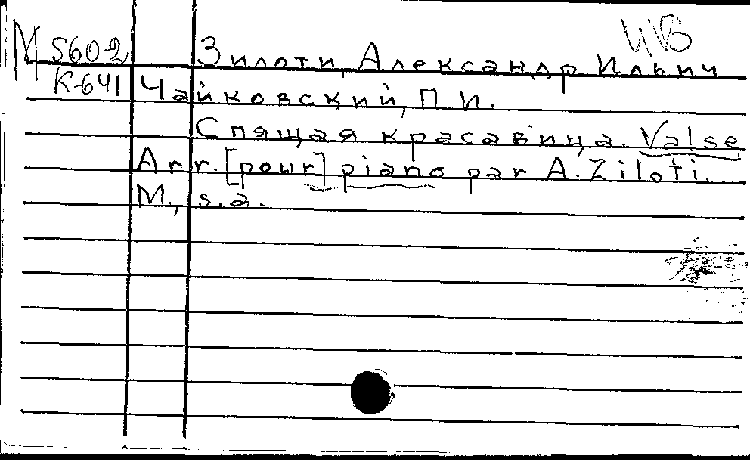 М 5602 Зилоти, Александр Ильич
К-641 Чайковский, П. И.
Спящая красавица. Valse
Arr. [pour] piano par A. Ziloti.
M., s.a.